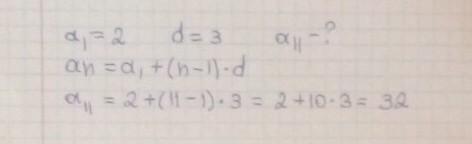 a₁ = 2 d = 3 a₁₁ - ?
an = a₁ + (n-1)·d
a₁₁ = 2 + (11-1)·3 = 2+10·3 = 32